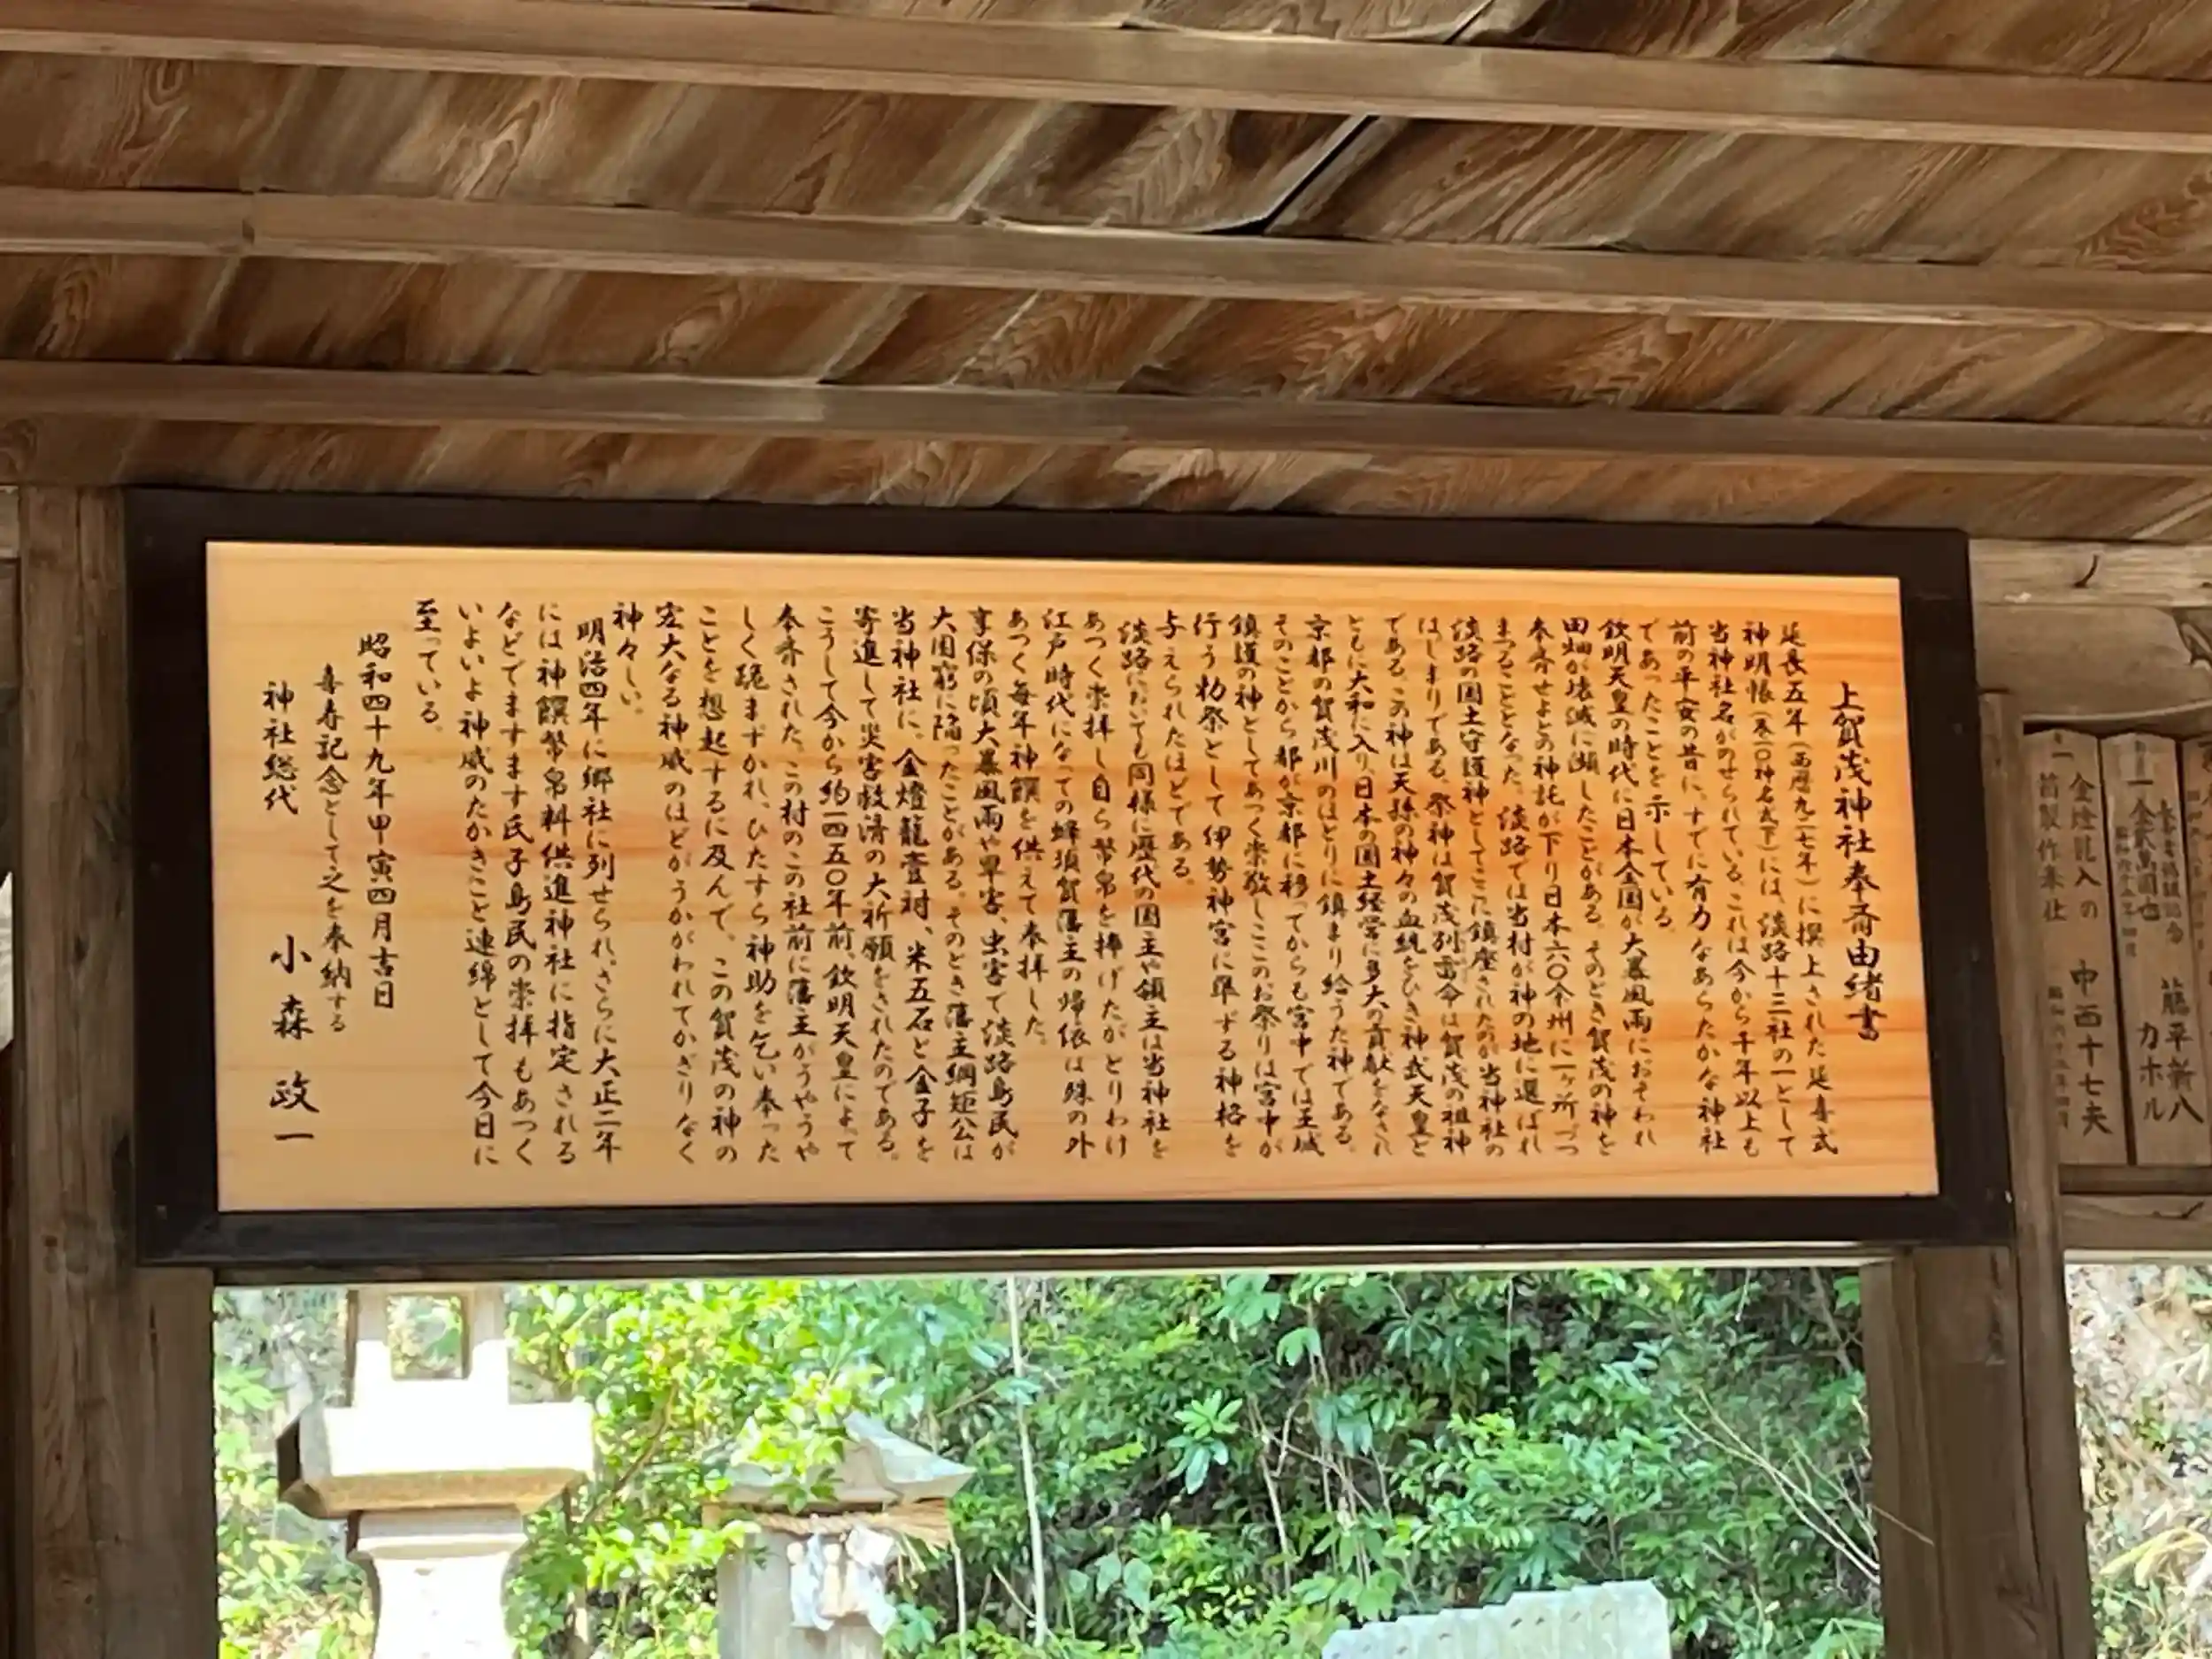 上賀茂神社奉斎由緒書
延長五年(西暦九二七年)に撰上された延喜式
神明帳(巻一〇神名式下)には、淡路十三社の一として
当神社名がのせられている。これは今から千年以上も
前の平安の昔に、すでに有力なあらたかな神社
であったことを示している。
欽明天皇の時代に日本全国が大暴風雨におそわれ
田畑が壊滅に瀕したことがある。そのとき賀茂の神を
奉斎せよとの神託が下り日本六〇余州に一ヶ所づつ
まつることとなった。淡路では当村が神の地に選ばれ
淡路の国土守護神としてここに鎮座されたのが当神社の
はじまりである。祭神は賀茂別雷命は賀茂の祖神
である。この神は天孫の神々の血統をひき神武天皇と
ともに大和に入り、日本の国土経営に多大の貢献をなされ
京都の賀茂川のほとりに鎮まり給うた神である。
そのことから都が京都に移ってからも宮中では王城
鎮護の神としてあつく崇敬しここのお祭りは宮中が
行う勅祭として伊勢神宮に準ずる神格を
与えられたほどである。
淡路においても同様に歴代の国主や領主は当神社を
あつく崇拝し自ら幣帛を捧げたがとりわけ
江戸時代になっての蜂須賀藩主の帰依は殊の外
あつく毎年神饌を供えて奉拝した。
享保の頃大暴風雨や旱害、虫害で淡路島民が
大困窮に陥ったことがある。そのとき藩主綱矩公は
当神社に、金燈籠壹対、米五石と金子を
寄進して災害救済の大祈願をされたのである。
こうして今から約一四五〇年前、欽明天皇によって
奉斎された、この村のこの社前に藩主がうやうや
しく跪まずかれ、ひたすら神助を乞い奉った
ことを想起するに及んで、この賀茂の神の
宏大なる神威のほどがうかがわれてかぎりなく
神々しい。
明治四年に郷社に列せられ、さらに大正二年
には神饌幣帛料供進神社に指定される
などでますます氏子島民の崇拝もあつく
いよいよ神威のたかきこと連綿として今日に
至っている。
昭和四十九年甲寅四月吉日
喜寿記念として之を奉納する
神社総代 小森政一
一金貮萬圓也
籠平新八
カホル
金燈籠入の
首製作奉仕 中西十七夫